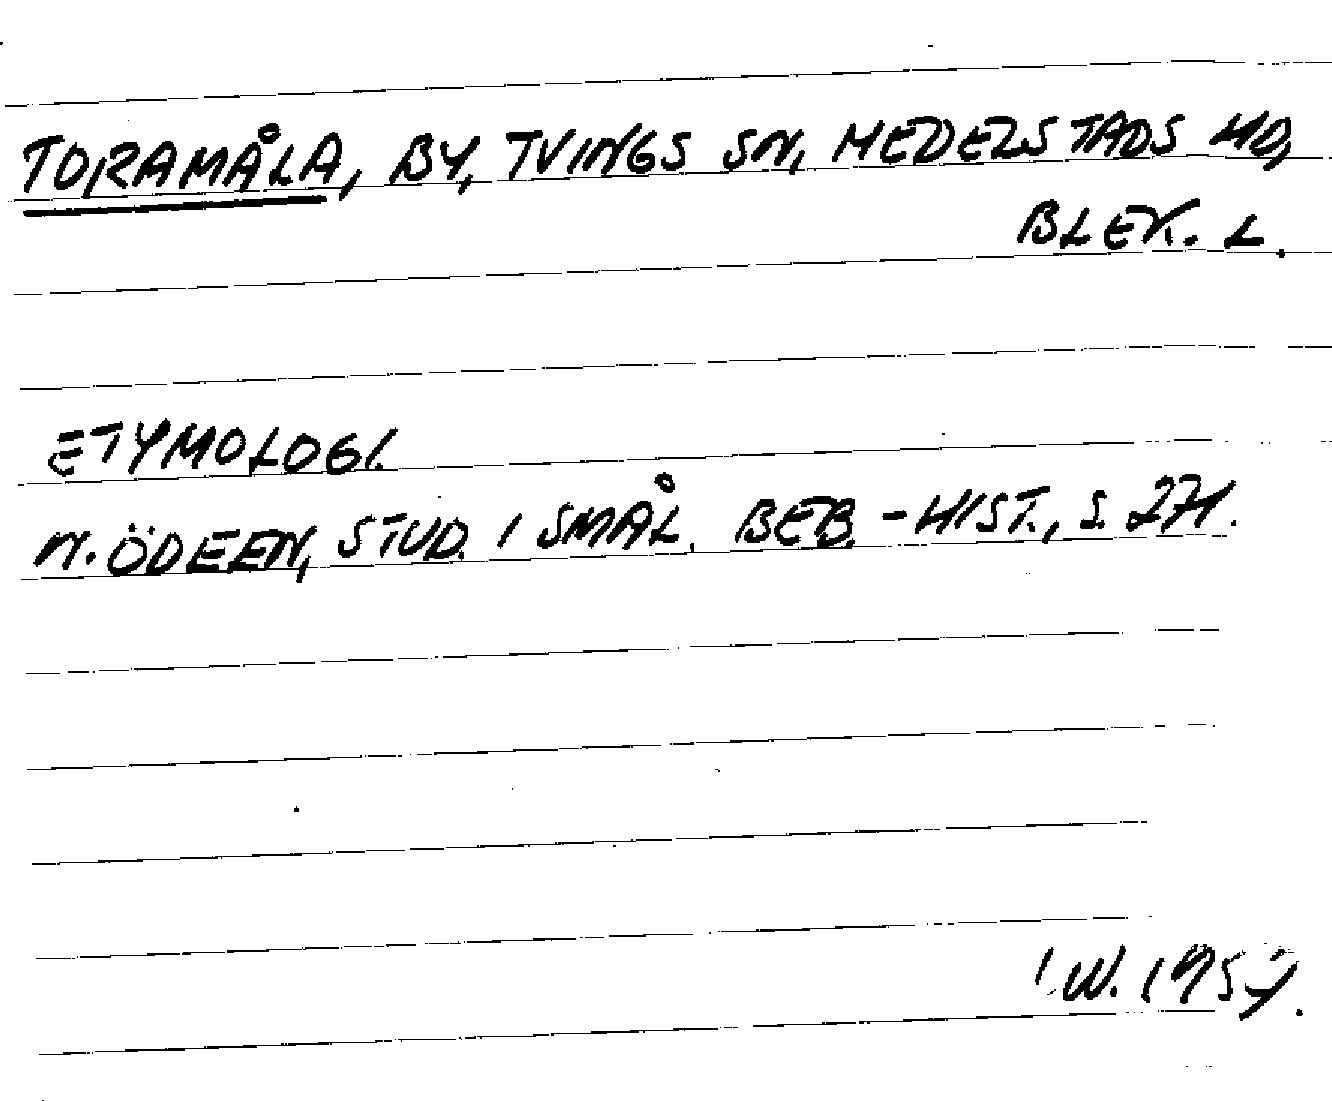 TORAMÅLA, BY, TVINGS SN, MEDELSTADS HD,
BLEK. L.
ETYMOLOGI.
N. ÖDEEN, STUD. I SMÅL. BEB.-HIST., S. 271.
I.W.